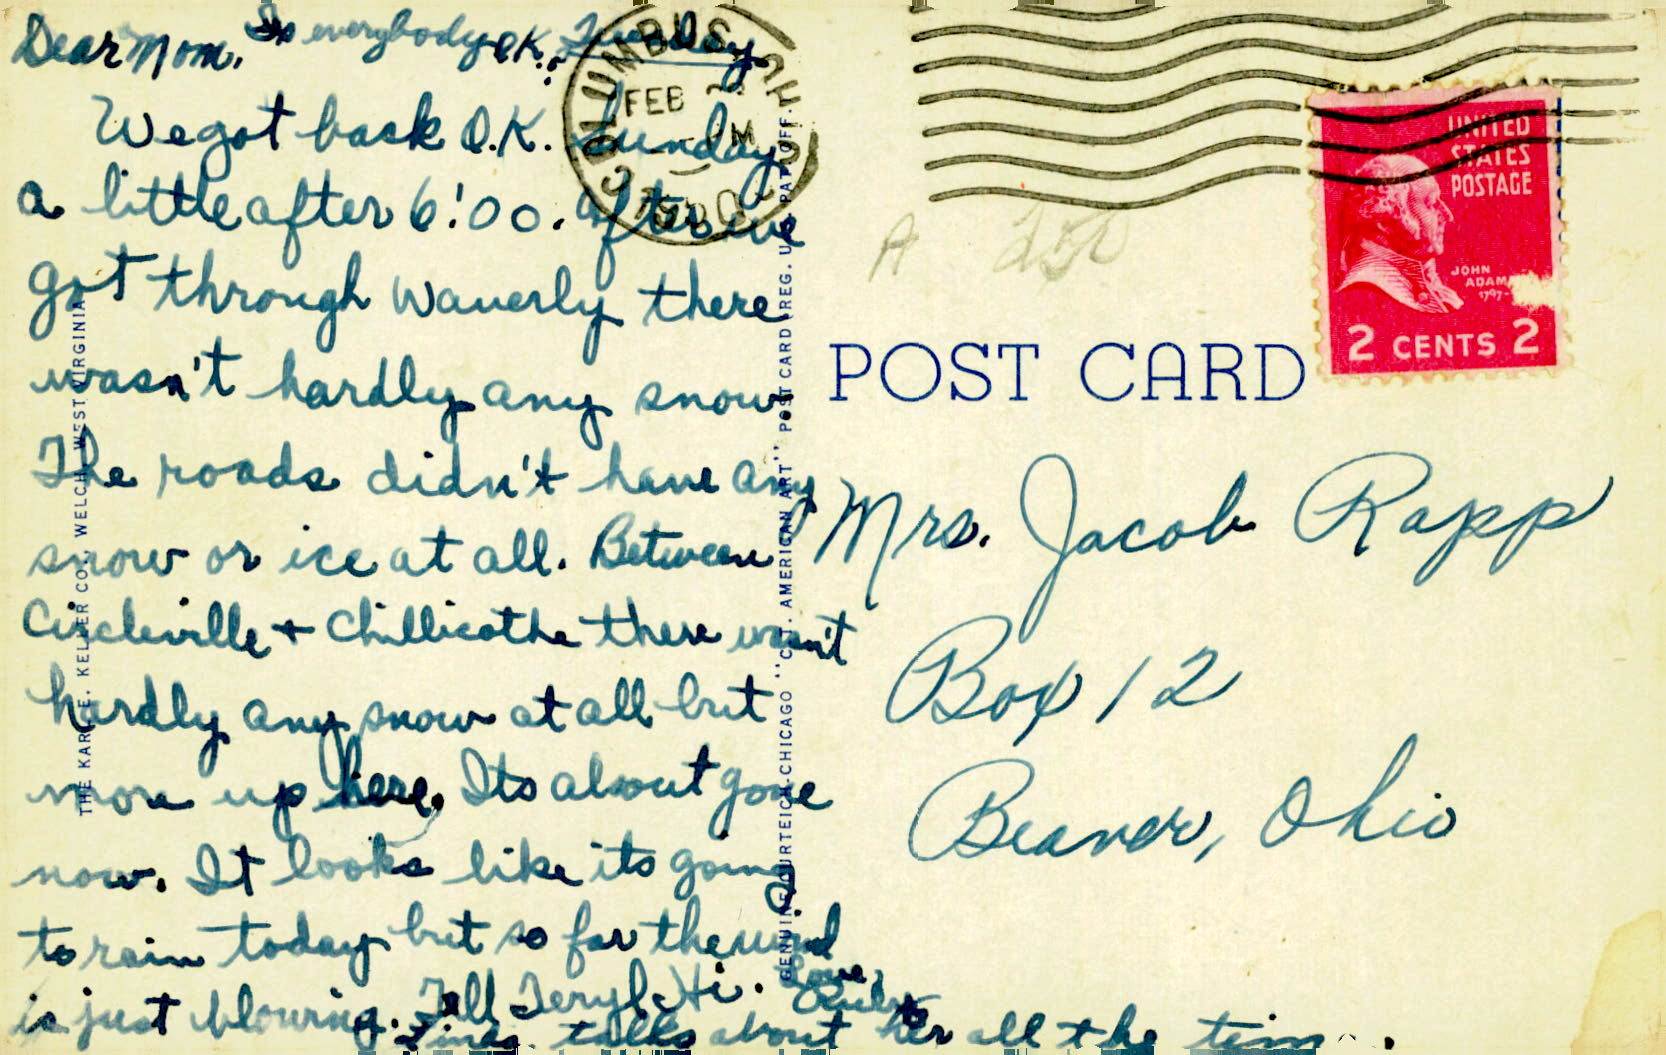 Dear Mom. Is everybody O.K.? Tuesday
We got back O.K. Sunday
a little after 6:00. After we
got through Waverly there
wasn't hardly any snow
The roads didn't have any
snow or ice at all. Between
Circleville + Chillicothe there wasn't
hardly any snow at all but
more up here. Its about gone
now. It looks like its going
to rain today but so far the wind
is just blowing. Tell Teryl Hi. Love,
talks about her all the time.
THE KARL E. KELLER CO., WELCH, WEST VIRGINIA
GENUINE CURTEICH-CHICAGO "C.T. AMERICAN ART" POST CARD (REG. U.S. PAT. OFF.)
COLUMBUS, OHIO
FEB
PM
UNITED
STATES
POSTAGE
JOHN
ADAMS
1797-
2 CENTS 2
POST CARD
Mrs. Jacob Rapp
Box 12
Beaver, Ohio